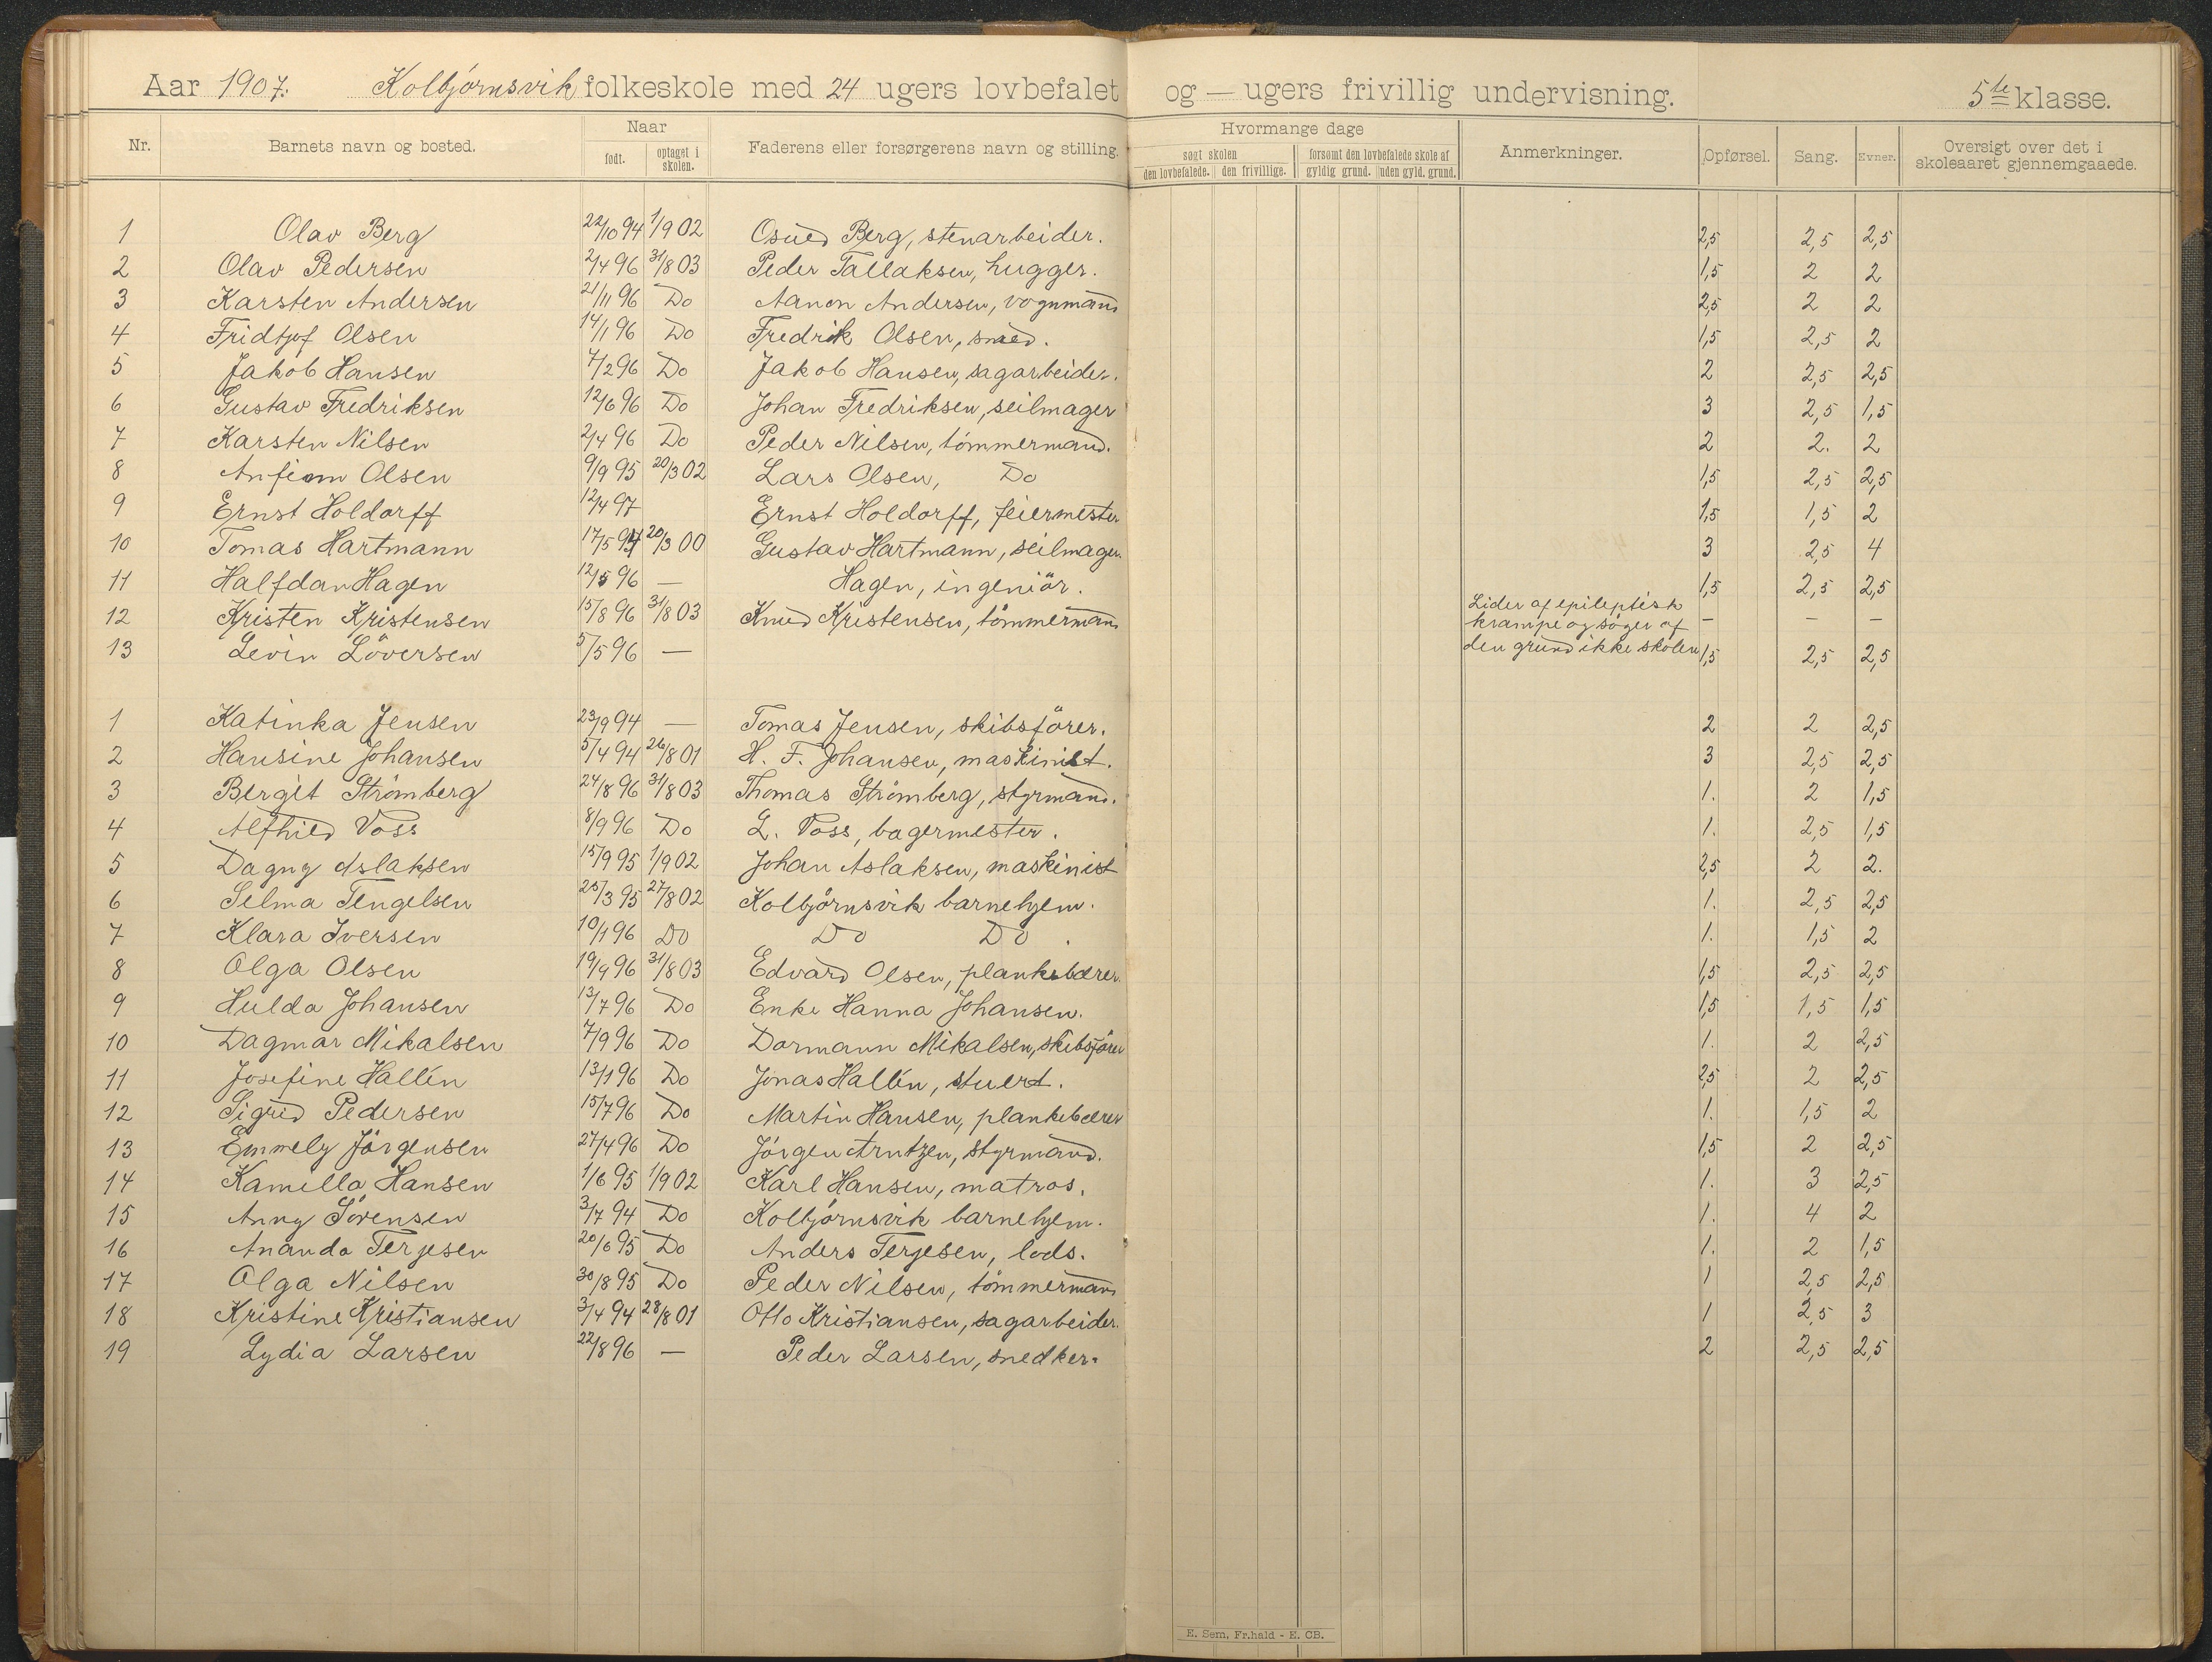 Aar 1907. Kolbjörnsvik folkeskole med 24 ugers lovbefalet og — ugers frivillig undervisning. 5te klasse.
Nr. Barnets navn og bosted. Naar født. optaget i skolen. Faderens eller forsørgerens navn og stilling. Hvormange dage søgt skolen den lovbefalede. den frivillige. forsømt den lovbefalede skole af gyldig grund. uden gyld. grund. Anmerkninger. Opførsel. Sang. Evner. Oversigt over det i skoleaaret gjennemgaaede.
1 Olav Berg 22/10 94 1/9 02 Osued Berg, stenarbeider. 2,5 2,5 2,5
2 Olav Pedersen 2/4 96 31/8 03 Peder Tallaksen, hugger. 1,5 2 2
3 Karsten Andersen 21/11 96 Do Aanon Andersen, vognmand 2,5 2 2
4 Fridtjof Olsen 14/1 96 Do Fredrik Olsen, smed. 1,5 2,5 2
5 Jakob Hansen 7/2 96 Do Jakob Hansen, sagarbeider. 2 2,5 2,5
6 Gustav Fredriksen 12/6 96 Do Johan Fredriksen, seilmager 3 2,5 1,5
7 Karsten Nilsen 2/4 96 Do Peder Nilsen, tömmermand. 2 2. 2
8 Anfinn Olsen 9/9 95 20/3 02 Lars Olsen, Do 1,5 2,5 2,5
9 Ernst Holdorff 12/4 97 Ernst Holdorff, feiermester 1,5 1,5 2
10 Tomas Hartmann 17/5 94 20/3 00 Gustav Hartmann, seilmager. 3 2,5 4
11 Halfdan Hagen 12/5 96 — Hagen, ingeniör. 1,5 2,5 2,5
12 Kristen Kristensen 15/8 96 31/8 03 Knud Kristensen, tömmermand Lider af epileptisk krampe og söger af den grund ikke skolen — — —
13 Levin Löversen 5/5 96 — 1,5 2,5 2,5
1 Katinka Jensen 23/9 94 — Tomas Jensen, skibsförer. 2 2 2,5
2 Hansine Johansen 5/4 94 26/8 01 H. F. Johansen, maskinist. 3 2,5 2,5
3 Bergit Strömberg 24/8 96 31/8 03 Thomas Strömberg, styrmand. 1. 2 1,5
4 Alfhild Voss 8/9 96 Do L. Voss, bagermester. 1. 2,5 1,5
5 Dagny Aslaksen 15/9 95 1/9 02 Johan Aslaksen, maskinist 2,5 2 2.
6 Selma Tengelsen 25/3 95 27/8 02 Kolbjörnsvik barnehjem. 1. 2,5 2,5
7 Klara Iversen 10/1 96 Do Do Do. 1. 1,5 2
8 Olga Olsen 19/9 96 31/8 03 Edvard Olsen, plankebærer. 1,5 2,5 2,5
9 Hulda Johansen 13/7 96 Do Enke Hanna Johansen. 1,5 1,5 1,5
10 Dagmar Mikalsen 7/9 96 Do Dormann Mikalsen, skibsförer 1. 2 2,5
11 Josefine Hallén 13/1 96 Do Jonas Hallén, stuert. 2,5 2 2,5
12 Sigrid Pedersen 15/7 96 Do Martin Hansen, plankebærer 1. 1,5 2
13 Emmely Jörgensen 27/4 96 Do Jörgen Arntzen, styrmand. 1,5 2 2,5
14 Kamilla Hansen 1/6 95 1/9 02 Karl Hansen, matros. 1. 3 2,5
15 Anny Sörensen 3/7 94 Do Kolbjörnsvik barnehjem. 1. 4 2
16 Ananda Terjesen 20/6 95 Do Anders Terjesen, lods. 1. 2 1,5
17 Olga Nilsen 30/8 95 Do Peder Nilsen, tömmermand 1 2,5 2,5
18 Kristine Kristiansen 3/4 94 28/8 01 Otto Kristiansen, sagarbeider. 1 2,5 3
19 Lydia Larsen 22/8 96 — Peder Larsen, snedker. 2 2,5 2,5
E. Sem, Fr.hald - E. CB.